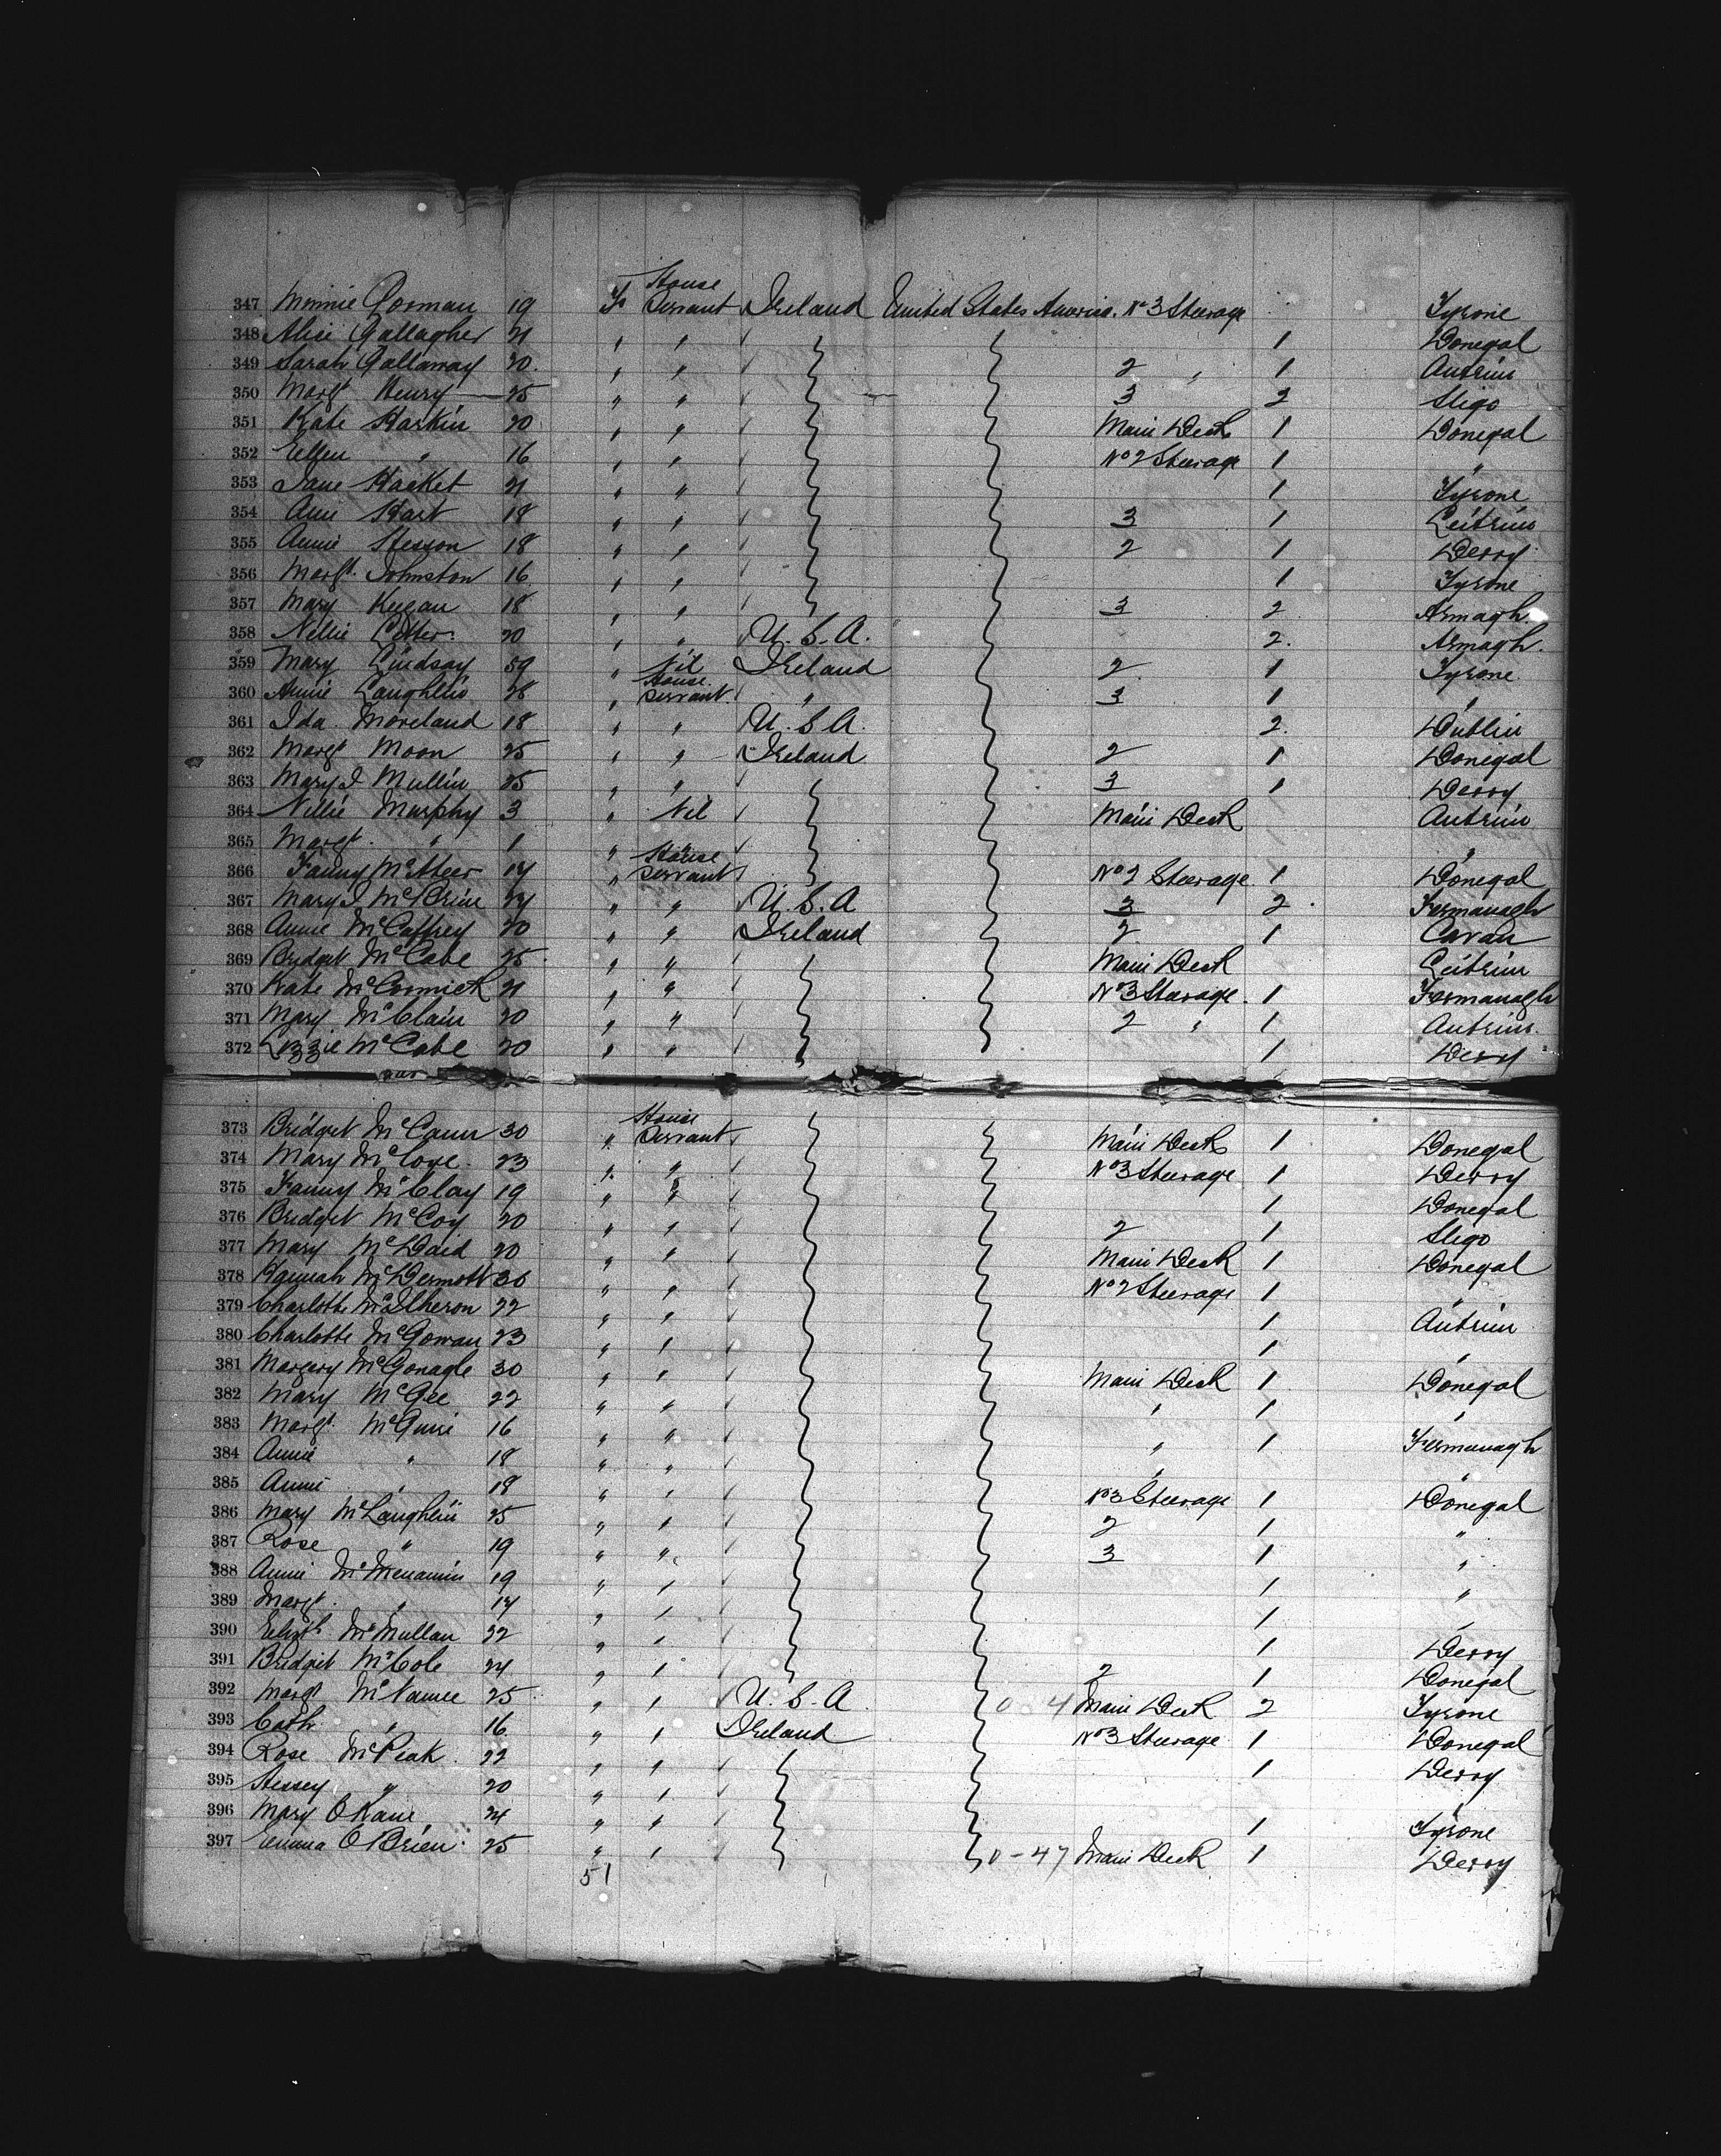 347 Minnie Gorman 19 F House Servant Ireland United States America. No 3 Steerage Tyrone
348 Alice Gallagher 21 " " 1 Donegal
349 Sarah Gallaway 20. " " 2 " 1 Antrim
350 Margt Henry 25 " " 3 2 Sligo
351 Kate Harkin 20 " " Main Deck 1 Donegal
352 Ellen " 16 " " No 2 Steerage 1 "
353 Jane Hacket 21 " " 1 Tyrone
354 Ann Hart 18 " " 3 1 Leitrim
355 Annie Hesson 18 " " 2 1 Derry
356 Margt. Johnston 16 " " 1 Tyrone
357 Mary Keegan 18 " " 3 2 Armagh
358 Nellie 20 " " U.S.A. 2. Armagh.
359 Mary Lindsay 59 " Nil Ireland 2 1 Tyrone
360 Annie Laughlin 28 " House Servant. " 3 1 "
361 Ida Moreland 18 " " U.S.A. 2. Dublin
362 Margt Moon 25 " " Ireland 2 1 Donegal
363 Mary J Mullin 25 " " 3 1 Derry
364 Nellie Murphy 3 " Nil Main Deck Antrim
365 Margt. " 1 " " "
366 Fanny McAteer 17 " House Servant No 2 Steerage 1 Donegal
367 Mary J McBrien 24 " " U.S.A 3 2 Fermanagh
368 Annie McCaffrey 20 " " Ireland 2 1 Cavan
369 Bridget McCabe 25 " " Main Deck Leitrim
370 Kate McCormick 21 " " No 3 Steerage. 1 Fermanagh
371 Mary McClain 20 " " 2 " 1 Antrim.
372 Lizzie McCabe 20 " " 1 Derry
373 Bridget McCann 30 " House Servant Main Deck 1 Donegal
374 Mary 23 " " No 3 Steerage 1 Derry
375 Fanny McClay 19 " " 1 Donegal
376 Bridget McCoy 20 " " 2 1 Sligo
377 Mary McDaid 20 " " Main Deck 1 Donegal
378 Hannah McDermott 30 " " No 2 Steerage 1 "
379 Charlotte McIlheron 22 " " 1 Antrim
380 Charlotte McGowan 23 " " 1 "
381 Margery McGonagle 30 " " Main Deck 1 Donegal
382 Mary McGee 22 " " " 1 "
383 Margt. McGuire 16 " " " 1 Fermanagh
384 Annie " 18 " " " "
385 Annie " 18 " " No 3 Steerage 1 Donegal
386 Mary McLaughlin 25 " " 2 1 "
387 Rose " 19 " " 3 1 "
388 Annie McMenamin 19 " " 1 "
389 Margt. " 17 " " 1 "
390 Elizth McMullan 32 " " 1 Derry
391 Bridget McCole 24 " " 2 1 Donegal
392 Margt McNamee 25 " " U.S.A 0 - 4 Main Deck 2 Tyrone
393 Cath. " 16 " " Ireland No 3 Steerage 1 Donegal
394 Rose McPeak. 22 " " 1 Derry
395 " 20 " "
396 Mary O'Kane 24 " " 1 Tyrone
397 Emma O'Brien 25 " " 0 - 47 Main Deck 1 Derry
51